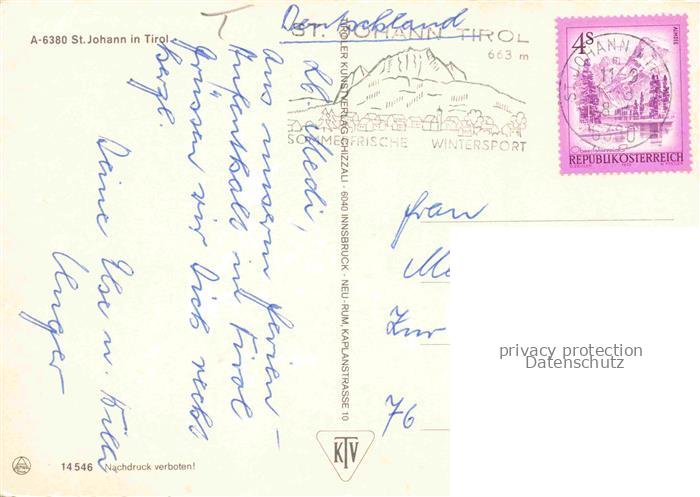 A-6380 St. Johann in Tirol
Deutschland
ST. JOHANN TIROL
663 m
SOMMERFRISCHE WINTERSPORT
ST. JOHANN I. T.
4S
REPUBLIK ÖSTERREICH
Lb. Medi,
Aus unserm Ferien-
Aufenthalt in Tirol
grüssen wir Dich recht
herzl.
Deine Ilse u. Willi
Unger
TIROLER KUNSTVERLAG CHIZZALI · 6040 INNSBRUCK - NEU-RUM, KAPLANSTRASSE 10
Frau
Me
Zur
76
privacy protection
Datenschutz
KTV
14546 Nachdruck verboten!